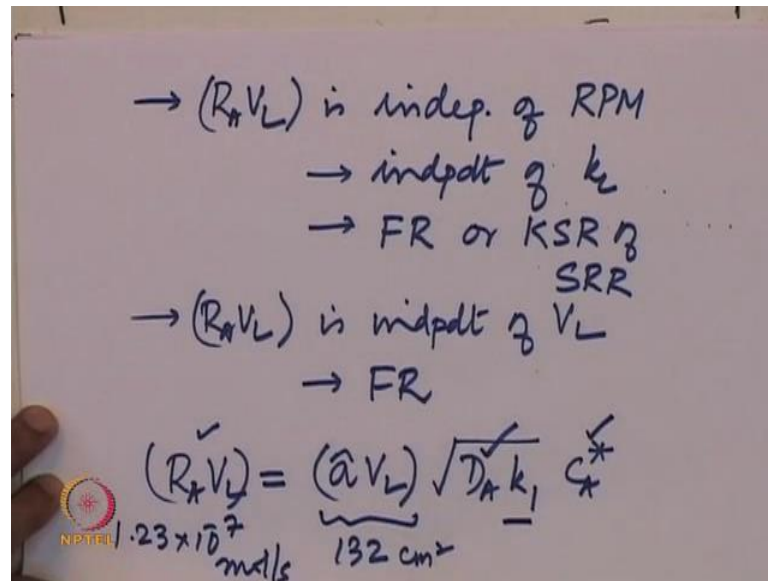 → (R_A V_L) is indep. of RPM
→ indpdt of k_L
→ FR or KSR of
SRR
→ (R_A V_L) is indpdt of V_L
→ FR
(R_A V_L) = (â V_L) √D_A k_1 C_A^*
1.23 × 10^-7 mol/s 132 cm²
NPTEL